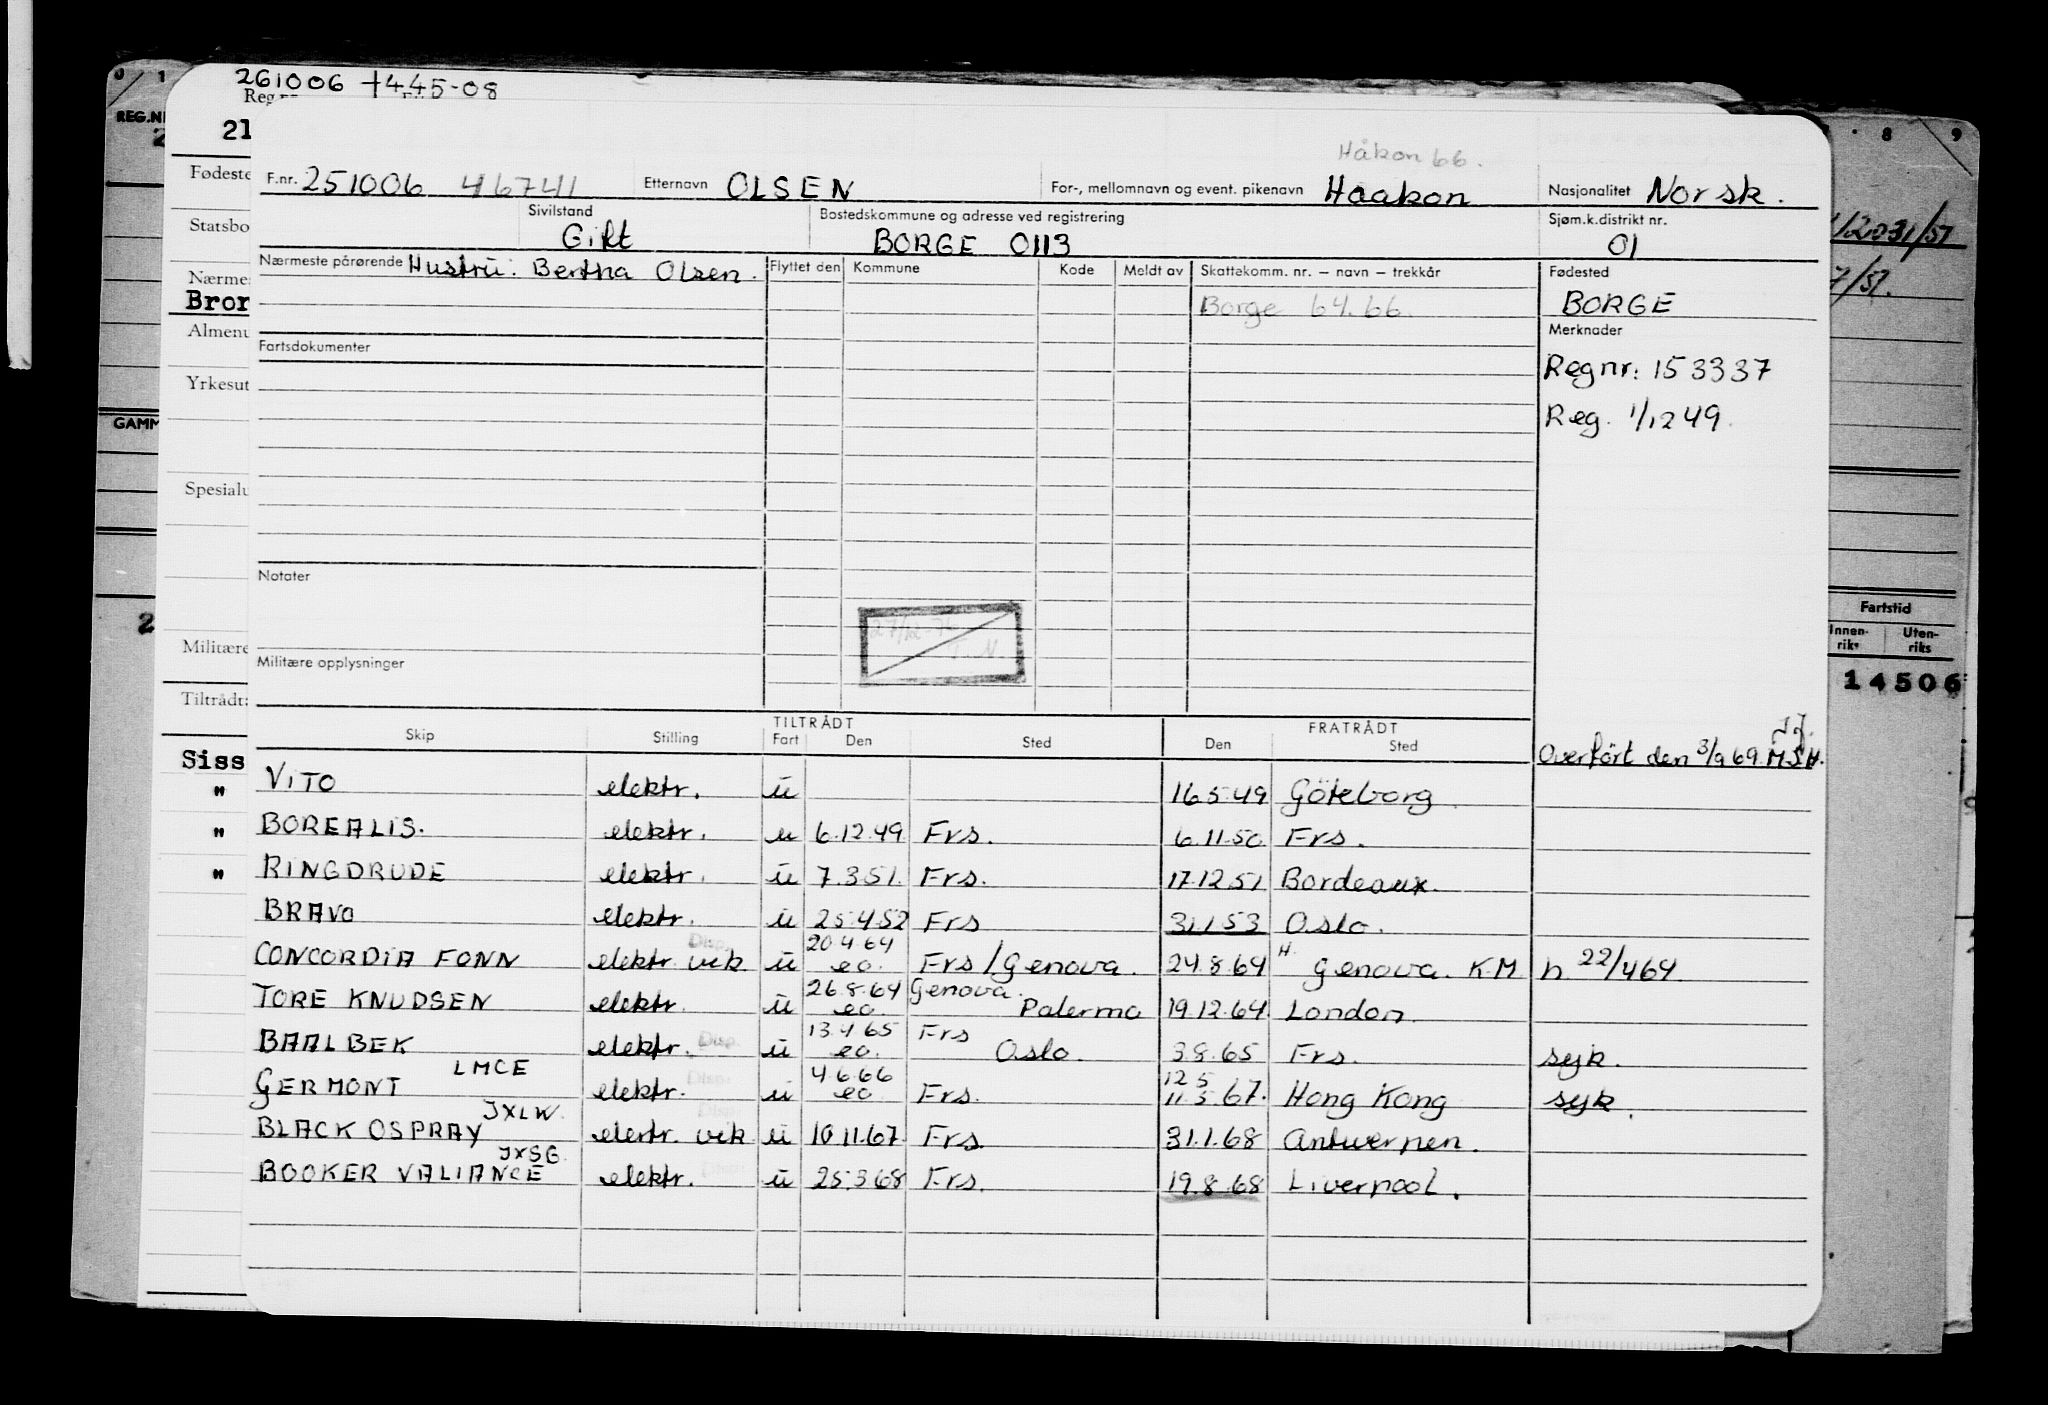 261006 +445-08
Reg.nr
21
Håkon 66.
F.nr. 251006 46741 Etternavn OLSEN For-, mellomnavn og event. pikenavn Haakon Nasjonalitet Norsk.
Sivilstand Gift Bostedskommune og adresse ved registrering BORGE 0113 Sjøm.k.distrikt nr. 01
Nærmeste pårørende Hustru: Bertha Olsen. Flyttet den Kommune Kode Meldt av Skattekomm. nr. – navn – trekkår Fødested
Borge 64.66. BORGE
Merknader
Fartsdokumenter
Regnr: 153337
Reg. 1/12 49.
Notater
27/12-76
T.N.
Militære opplysninger
TILTRÅDT FRATRÅDT
Skip Stilling Fart Den Sted Den Sted
J.J.
Overført den 3/9 69. M.S.H.
VITO elektr. u 16.5.49 Göteborg.
BOREALIS. elektr. u 6.12.49 Frs. 6.11.50 Frs.
RINGDRUDE elektr. u 7.3.51. Frs. 17.12.51 Bordeaux.
BRAVO elektr. u 25.4.52 Frs 31.1.53 Oslo.
CONCORDIA FONN elektr. vik Disp. u 20.4.64 eo. Frs/Genova. 24.8.64 H Genova. KM h 22/4 64.
TORE KNUDSEN elektr. u 26.8.64 eo. Genova. Palermo 19.12.64 London.
BAALBEK elektr. Disp. u 13.4.65 eo. Frs Oslo. 3.8.65 Frs. syk.
LMCE
GERMONT elektr. Disp. u 4.6.66 eo. Frs. 12.5 11.5 67. Hong Kong syk.
JXLW.
BLACK OSPRAY elektr. vik u 10.11.67. Frs. 31.1.68 Antwerpen.
JXSG.
BOOKER VALIANCE elektr. u 25.3.68 Frs. 19.8.68 Liverpool.
0 1
REG.NR
2
Fødeste
Statsbo
Nærmes
Bror
Almenu
Yrkesut
GAMM
Spesialu
2
Militære
Tiltrådt:
Siss
"
"
"
8 9
7/51.
Fartstid
Innen-riks Uten-riks
14506